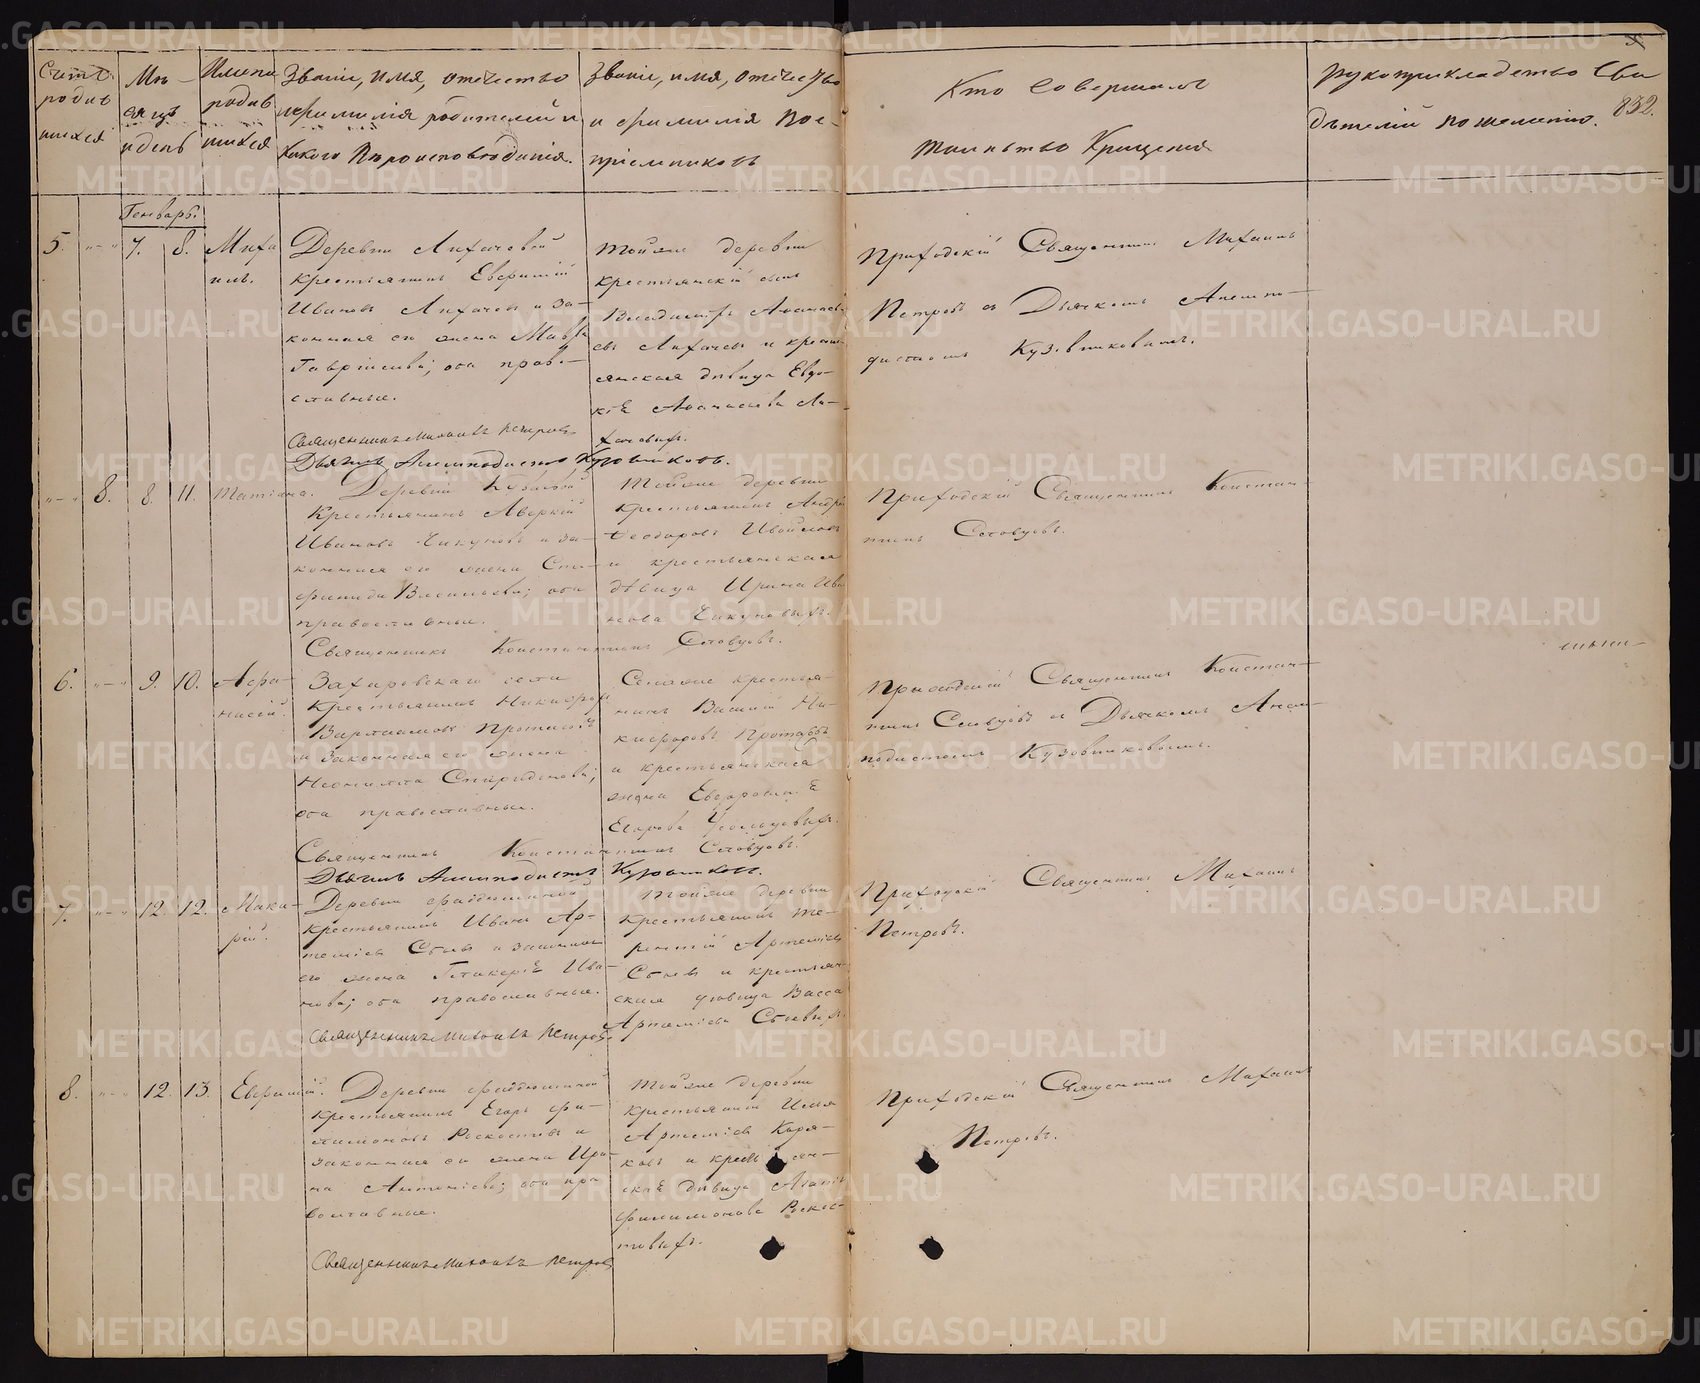 Счетъ родив шихся
Мѣ- сяцъ и день
Имена родив шихся
Званіе, имя, отечество и фамилія родителей и какого вѣроисповѣданія.
Званіе, имя, отечество и фамилія вос- пріемниковъ
Кто совершалъ таинство Крещенія
Рукоприкладство Сви дѣтелей по желанію.
832.
Генварь.
5. 7. 8. Миха илъ.
Деревни Лихачевой
крестьянинъ Евфимій
Ивановъ Лихачевъ и за-
конная его жена Мавра
Гавріилова; оба право-
славные.
Священникъ Михаилъ Петровъ
Дьячекъ Анемподистъ Кузовниковъ.
Тойже деревни
крестьянскій сынъ
Владиміръ Афанась-
евъ Лихачевъ и кресть-
янская дѣвица Евдо-
кія Афанасьева Ли-
хачевы.
Приходскій Священникъ Михаилъ
Петровъ съ Дьячкомъ Анемпо-
дистомъ Кузовниковымъ.
8. 8. 11. Татіана.
Деревни
Крестьянинъ Аверкій
Ивановъ Чикуновъ и за-
конная его жена Спи-
ридонида Васильева; оба
православные.
Священникъ Константинъ Словцовъ.
Тойже деревни
крестьянинъ Андрей
Ѳеодоровъ
и крестьянская
дѣвица Ирина Ива
нова
Приходскій Священникъ Констан-
тинъ Словцовъ.
6. 9. 10. Афана- насій.
Захаровскаго села
Крестьянинъ Никифоръ
Варлаамовъ Протасовъ
и законная его жена
Неонилла Спиридонова;
оба православные.
Священникъ Константинъ Словцовъ.
Дьячекъ Анемподистъ Кузовниковъ.
Селаже крестья-
нинъ Василій Ни-
кифоровъ Протасовъ
и крестьянская
жена Евфросинія
Егорова
Приходскій Священникъ Констан-
тинъ Словцовъ съ Дьячкомъ Анем-
подистомъ Кузовниковымъ.
7. 12. 12. Мака- рій.
Деревни Фаддюшиной
крестьянинъ Иванъ Ар-
теміевъ и законная
его жена Гликерія Ива-
нова; оба православные.
Священникъ Михаилъ Петровъ.
Тойже деревни
крестьянинъ Те-
рентій Артеміевъ
и крестьян-
ская дѣвица Васса
Артеміева
Приходскій Священникъ Михаилъ
Петровъ.
8. 12. 13. Евфимій.
Деревни Фаддюшиной
крестьянинъ Егоръ Фи-
лимоновъ и
законная его жена Ири-
на Антоніева; оба пра
вославные.
Священникъ Михаилъ Петровъ
Тойже деревни
крестьянинъ Илья
Артеміевъ Каря-
ковъ и крестьян-
ская дѣвица
Филимонова
Приходскій Священникъ Михаилъ
Петровъ.
METRIKI.GASO-URAL.RU